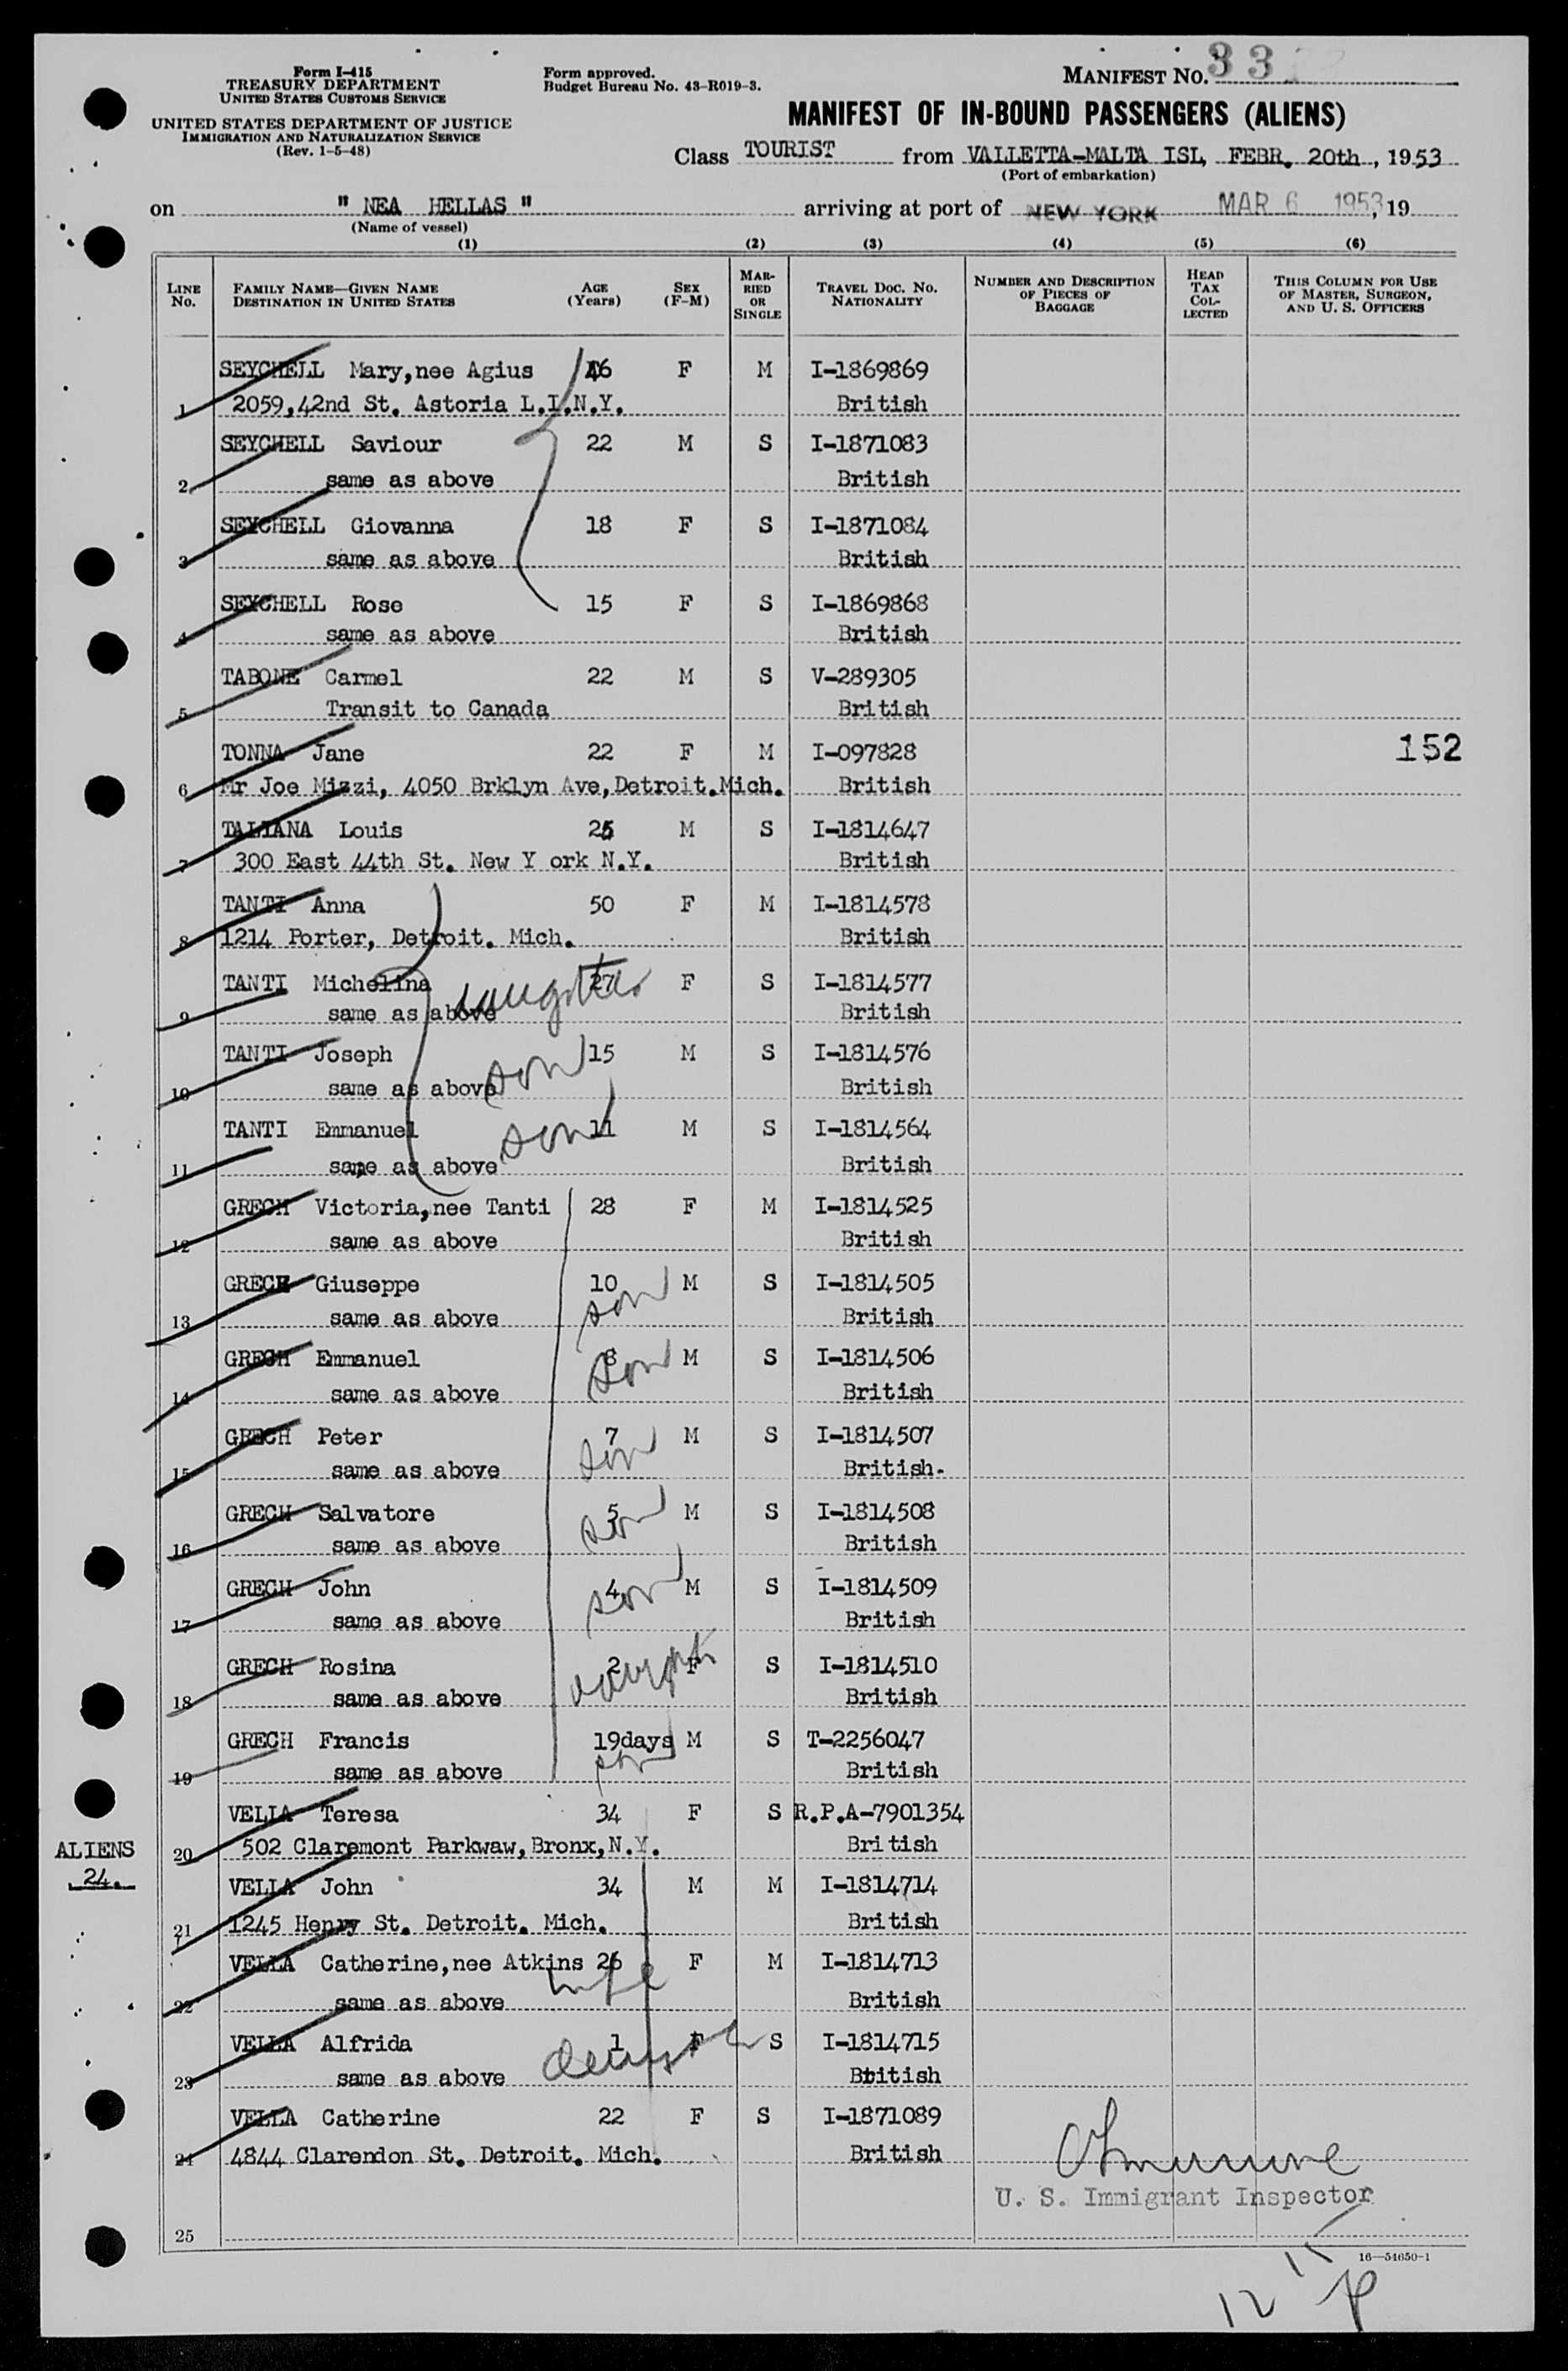 Form I-415
TREASURY DEPARTMENT
UNITED STATES CUSTOMS SERVICE
UNITED STATES DEPARTMENT OF JUSTICE
IMMIGRATION AND NATURALIZATION SERVICE
(Rev. 1-5-48)
Form approved.
Budget Bureau No. 43-R019-3.
MANIFEST NO. 33
MANIFEST OF IN-BOUND PASSENGERS (ALIENS)
Class TOURIST from VALLETTA-MALTA ISL, FEBR. 20th, 1953
(Port of embarkation)
on " NEA HELLAS " arriving at port of NEW YORK MAR 6 1953, 19
(Name of vessel)
(1) (2) (3) (4) (5) (6)
LINE NO. FAMILY NAME—GIVEN NAME DESTINATION IN UNITED STATES AGE (Years) SEX (F-M) MARRIED OR SINGLE TRAVEL DOC. NO. NATIONALITY NUMBER AND DESCRIPTION OF PIECES OF BAGGAGE HEAD TAX COLLECTED THIS COLUMN FOR USE OF MASTER, SURGEON, AND U. S. OFFICERS
SEYCHELL Mary,nee Agius 46 F M I-1869869
1 2059,42nd St. Astoria L.I.N.Y. British
SEYCHELL Saviour 22 M S I-1871083
2 same as above British
SEYCHELL Giovanna 18 F S I-1871084
3 same as above British
SEYCHELL Rose 15 F S I-1869868
4 same as above British
TABONE Carmel 22 M S V-289305
5 Transit to Canada British
TONNA Jane 22 F M I-097828 152
6 Mr Joe Mizzi, 4050 Brklyn Ave,Detroit.Mich. British
TALIANA Louis M S I-1814647
7 300 East 44th St. New Y ork N.Y. British
TANTI Anna 50 F M I-1814578
8 1214 Porter, Detroit. Mich. British
TANTI Michelina 27 F S I-1814577
9 same as above daughter British
TANTI Joseph 15 M S I-1814576
10 same as above son British
TANTI Emmanuel 11 M S I-1814564
11 same as above son British
GRECH Victoria,nee Tanti 28 F M I-1814525
12 same as above British
GRECH Giuseppe 10 M S I-1814505
13 same as above son British
GRECH Emmanuel 8 M S I-1814506
14 same as above son British
GRECH Peter 7 M S I-1814507
15 same as above son British.
GRECH Salvatore 5 M S I-1814508
16 same as above son British
GRECH John 4 M S I-1814509
17 same as above son British
GRECH Rosina 2 F S I-1814510
18 same as above daughter British
GRECH Francis 19days M S T-2256047
19 same as above son British
VELLA Teresa 34 F S R.P.A-7901354
20 502 Claremont Parkwaw,Bronx,N.Y. British
ALIENS
24.
VELLA John 34 M M I-1814714
21 1245 Henry St. Detroit. Mich. British
VELLA Catherine,nee Atkins 26 F M I-1814713
22 same as above wife British
VELLA Alfrida 1 F S I-1814715
23 same as above daughter British
VELLA Catherine 22 F S I-1871089
24 4844 Clarendon St. Detroit. Mich. British
U. S. Immigrant Inspector
25
16—54650-1
12